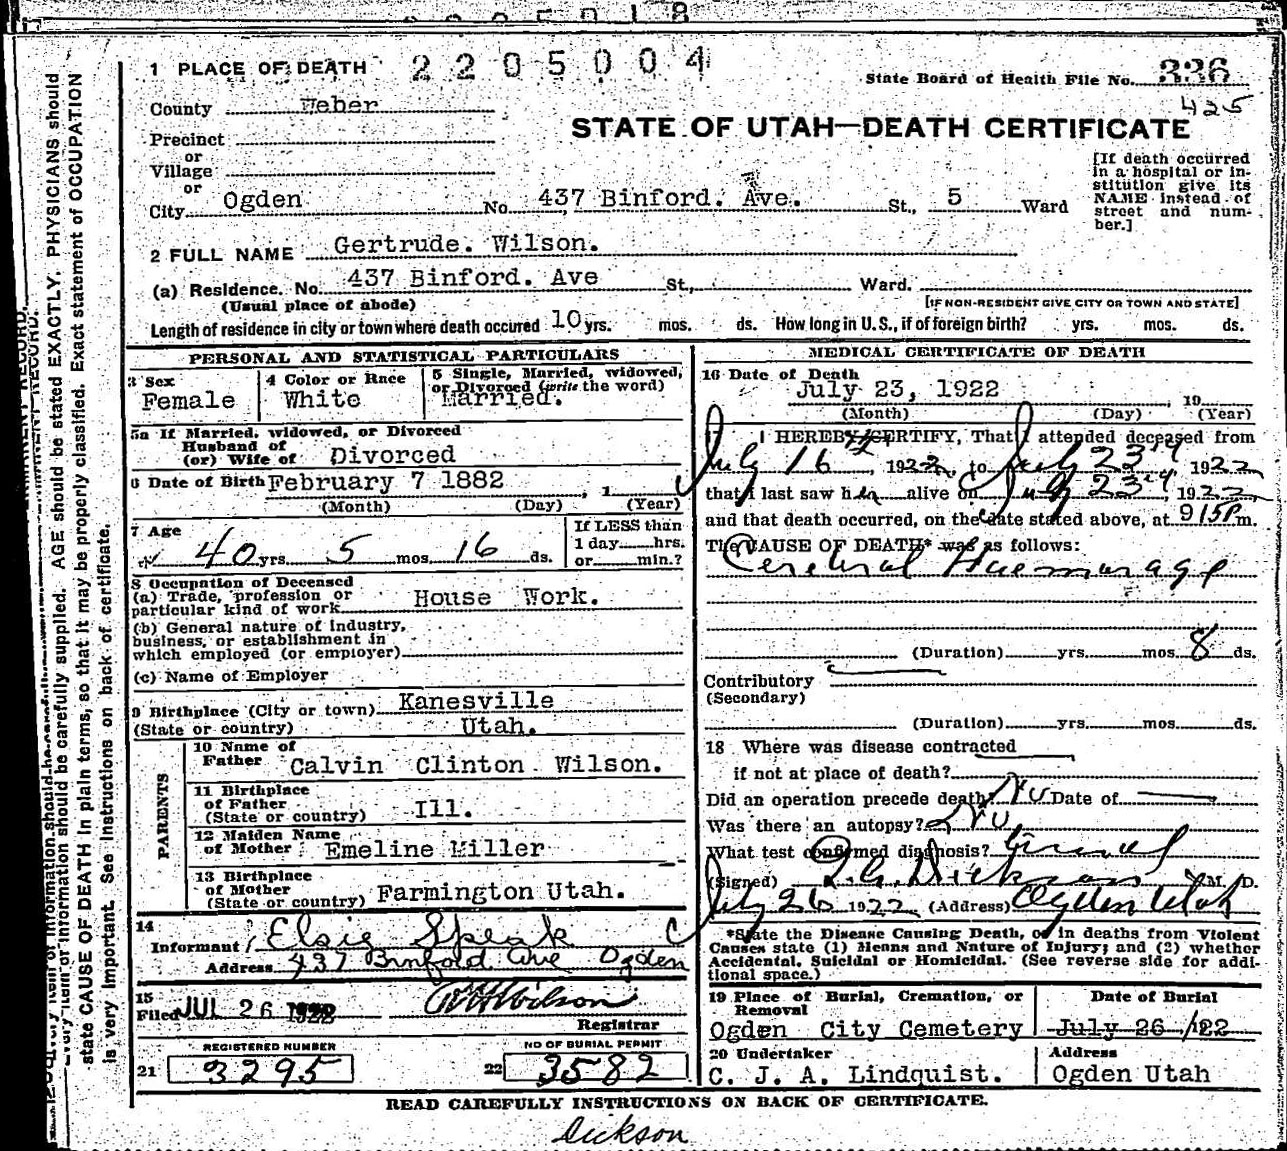 1 PLACE OF DEATH 2205004
State Board of Health File No. 336
425
County Weber
STATE OF UTAH—DEATH CERTIFICATE
Precinct
or
Village
or
City Ogden No. 437 Binford. Ave. St., 5 Ward
[If death occurred
in a hospital or in-
stitution give its
NAME instead of
street and num-
ber.]
2 FULL NAME Gertrude. Wilson.
(a) Residence. No. 437 Binford. Ave St., Ward.
(Usual place of abode) [IF NON-RESIDENT GIVE CITY OR TOWN AND STATE]
Length of residence in city or town where death occured 10 yrs. mos. ds. How long in U. S., if of foreign birth? yrs. mos. ds.
PERSONAL AND STATISTICAL PARTICULARS
3 Sex
Female
4 Color or Race
White
5 Single, Married, widowed,
or Divorced (write the word)
Married.
5a If Married, widowed, or Divorced
Husband of
(or) Wife of Divorced
6 Date of Birth February 7 1882 , 1
(Month) (Day) (Year)
7 Age
40 yrs. 5 mos. 16 ds.
If LESS than
1 day hrs.
or min.?
8 Occupation of Deceased
(a) Trade, profession or
particular kind of work House Work.
(b) General nature of industry,
business, or establishment in
which employed (or employer)
(c) Name of Employer
9 Birthplace (City or town) Kanesville
(State or country) Utah.
PARENTS
10 Name of
Father Calvin Clinton Wilson.
11 Birthplace
of Father
(State or country) Ill.
12 Maiden Name
of Mother Emeline Miller
13 Birthplace
of Mother
(State or country) Farmington Utah.
14
Informant Elsie Speak
Address 437 Binford Ave Ogden
15
Filed JUL 26 1922 Wilson
Registrar
REGISTERED NUMBER
21 3295
NO OF BURIAL PERMIT
22 3582
MEDICAL CERTIFICATE OF DEATH
16 Date of Death
July 23, 1922 , 19
(Month) (Day) (Year)
17 I HEREBY CERTIFY, That I attended deceased from
July 16 , 1922, to July 23rd , 1922
that I last saw her alive on July 23rd , 1922
and that death occurred, on the date stated above, at 915P m.
The CAUSE OF DEATH* was as follows:
Cerebral Haemorage
(Duration) yrs. mos. 8 ds.
Contributory
(Secondary)
(Duration) yrs. mos. ds.
18 Where was disease contracted
if not at place of death?
Did an operation precede death? No Date of
Was there an autopsy? No
What test confirmed diagnosis?
(Signed) Dickson M. D.
July 26 1922 (Address) Ogden Utah
*State the Disease Causing Death, or in deaths from Violent
Causes state (1) Means and Nature of Injury; and (2) whether
Accidental, Suicidal or Homicidal. (See reverse side for addi-
tional space.)
19 Place of Burial, Cremation, or
Removal
Ogden City Cemetery
Date of Burial
July 26 /22
20 Undertaker
C. J. A. Lindquist.
Address
Ogden Utah
READ CAREFULLY INSTRUCTIONS ON BACK OF CERTIFICATE.
Dickson
AGE should be stated EXACTLY. PHYSICIANS should
state CAUSE OF DEATH in plain terms, so that it may be properly classified. Exact statement of OCCUPATION
is very important. See instructions on back of certificate.